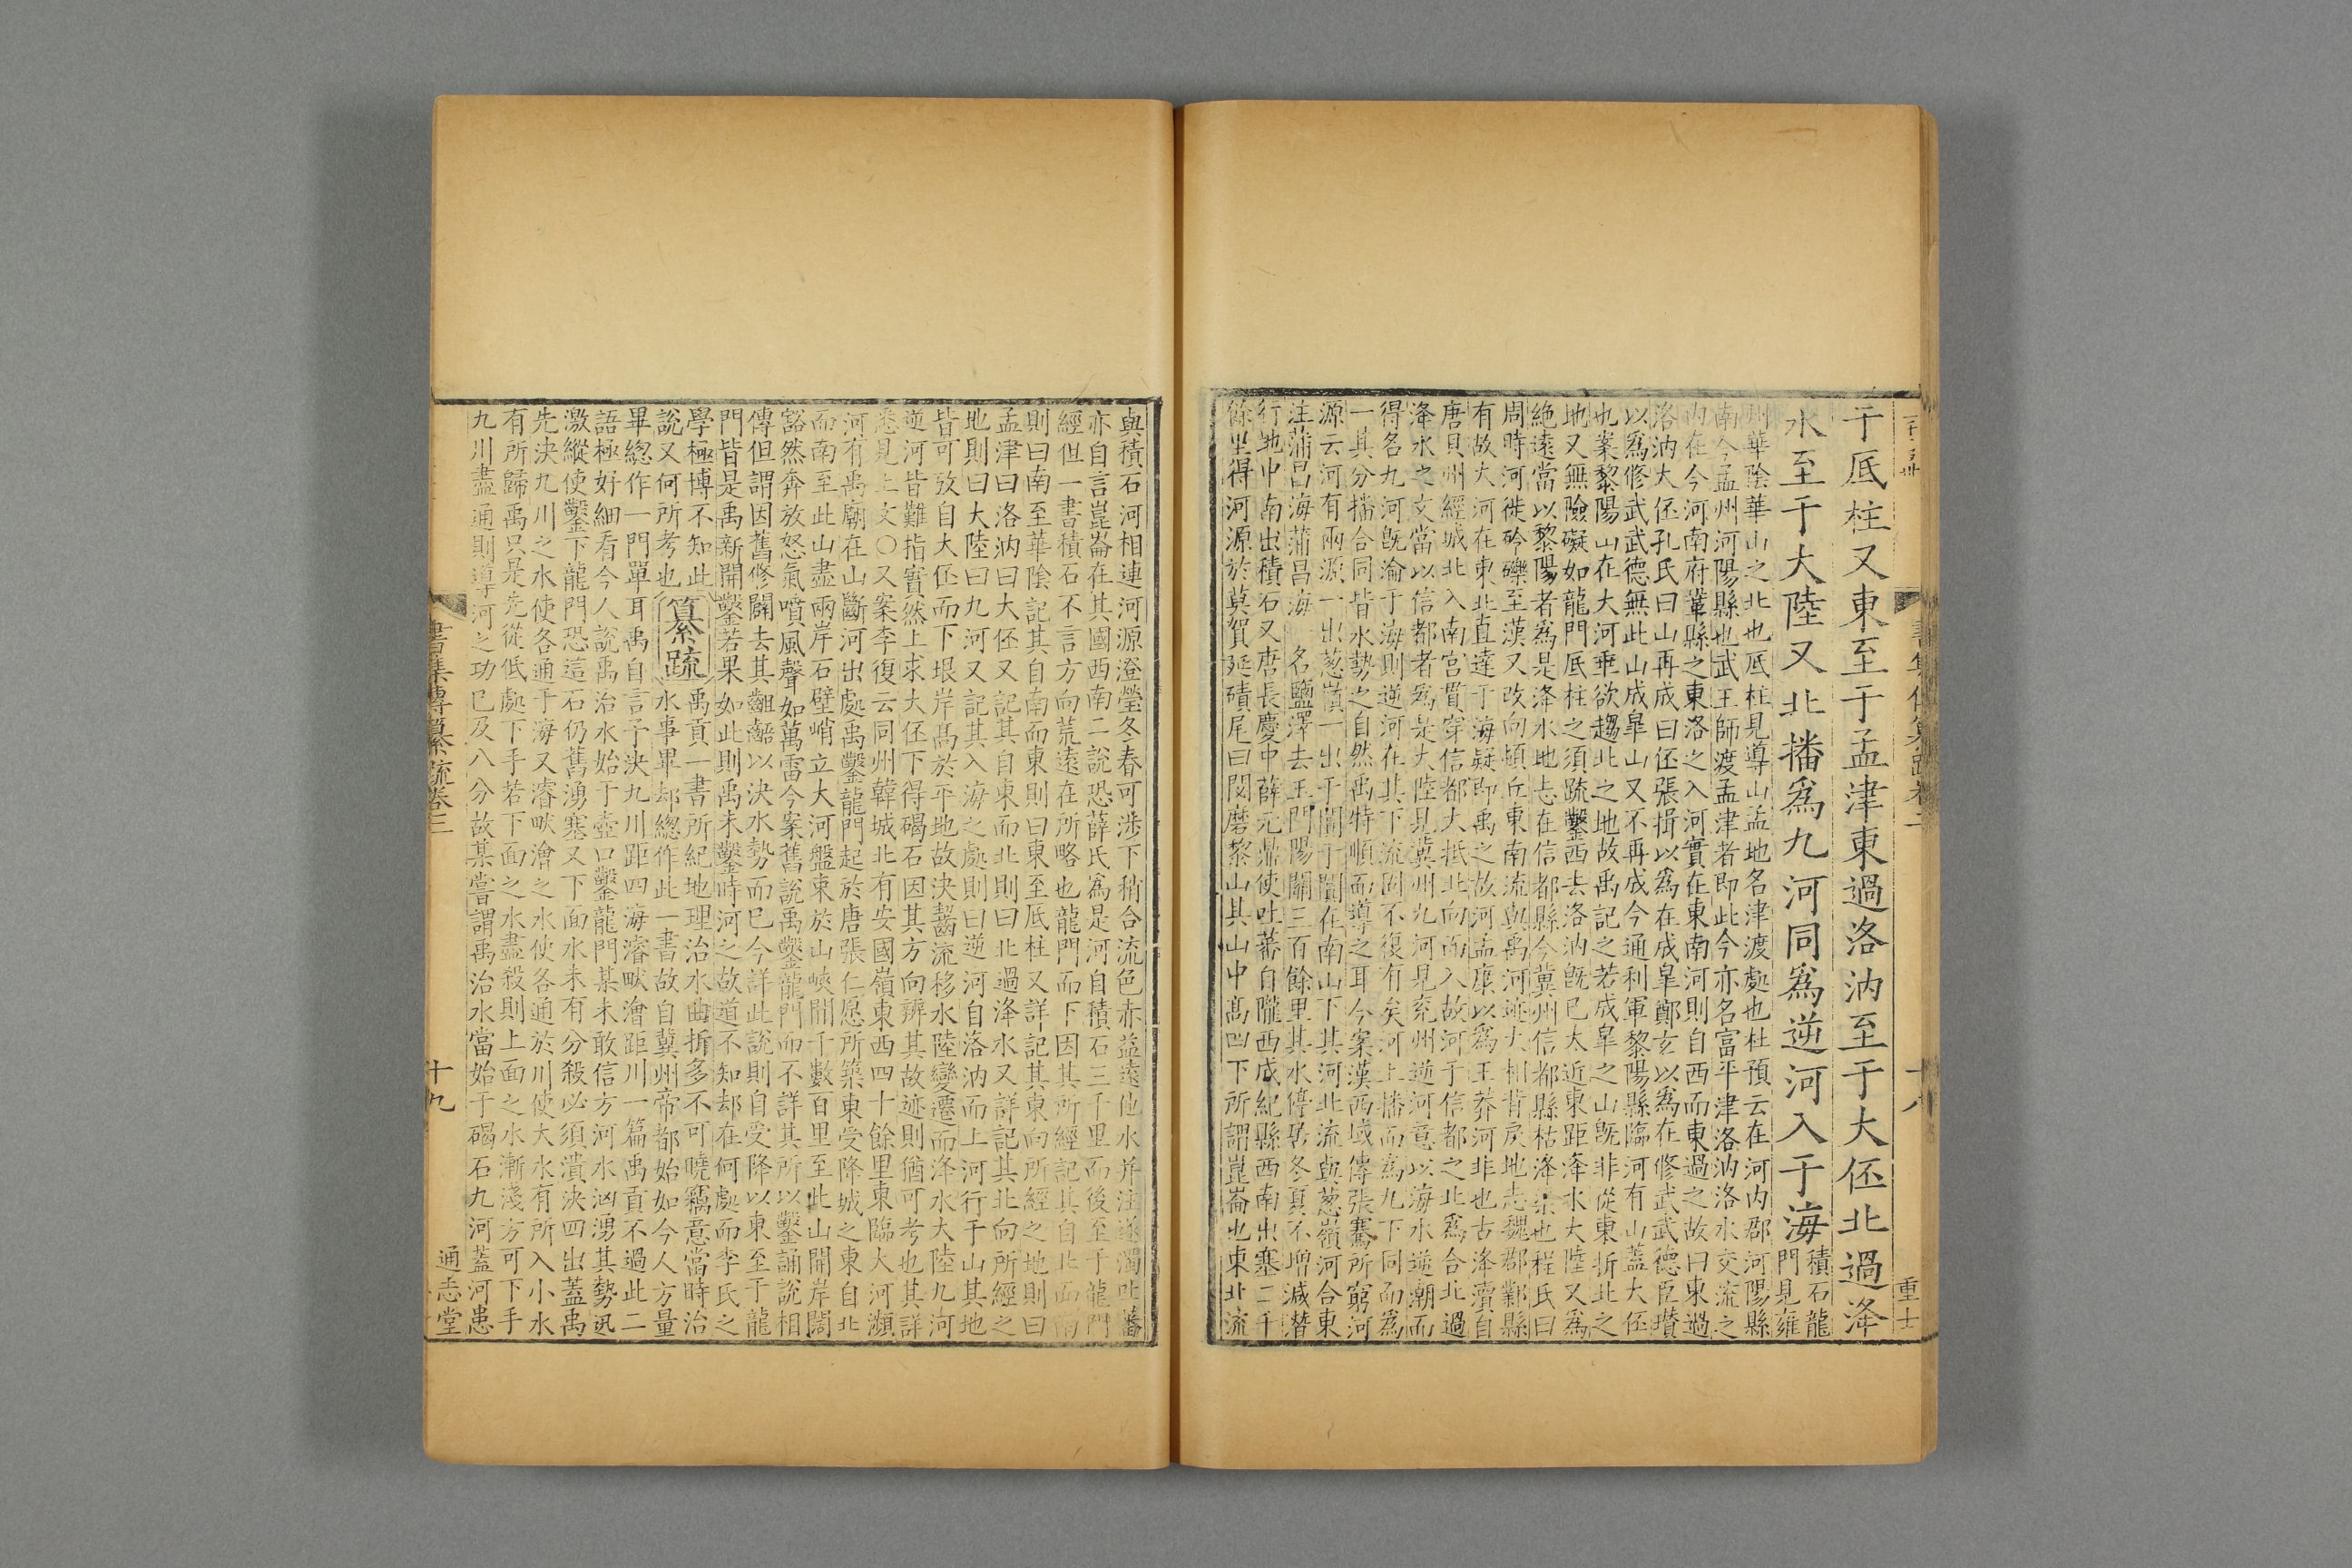 于厎柱又東至于孟津東過洛汭至于大伾北過洚
水至于大陸又北播爲九河同爲逆河入于海
積石龍
門見雍
則華陰華山之北也厎柱見導山孟地名津渡處也杜預云在河内郡河陽縣
南今孟州河陽縣也武王師渡孟津者即此今亦名富平津洛汭洛水交流之
内在今河南府鞏縣之東洛之入河實在東南河則自西而東過之故曰東過
洛汭大伾孔氏曰山再成曰伾張揖以爲在成皐鄭玄以爲在修武武德臣瓚
以爲修武武德無此山成皐山又不再成今通利軍黎陽縣臨河有山蓋大伾
也案黎陽山在大河垂欲趨北之地故禹記之若成皐之山旣非從東折北之
地又無險礙如龍門厎柱之須疏鑿西去洛汭旣已太近東距洚水大陸又爲
絶遠當以黎陽者爲是洚水地志在信都縣今冀州信都縣枯洚渠也程氏曰
周時河徙砱礫至漢又改向頓丘東南流與禹河迹大相背戾地志魏郡鄴縣
有故大河在東北直達于海疑即禹之故河孟康以爲王莽河非也古洚瀆自
唐貝州經城北入南宮貫穿信都大抵北向而入故河于信都之北爲合北過
洚水之文當以信都者爲是大陸見冀州九河見兖州逆河意以海水逆潮而
得名九河旣淪于海則逆河在其下流固不復有矣河上播而爲九下同而爲
一其分播合同皆水勢之自然禹特順而導之耳今案漢西域傳張騫所窮河
源云河有兩源一出葱嶺一出于闐于闐在南山下其河北流與葱嶺河合東
注蒲昌海蒲昌海一名鹽澤去玉門陽關三百餘里其水停居冬夏不增減潛
行地中南出積石又唐長慶中薛元鼎使吐蕃自隴西成紀縣西南出塞二千
餘里得河源於莫賀延磧尾曰悶磨黎山其山中髙四下所謂崑崙也東北流
與積石河相連河源澄瑩冬春可涉下稍合流色赤益遠他水并注遂濁吐蕃
亦自言崑崙在其國西南二說恐薛氏爲是河自積石三千里而後至于龍門
經但一書積石不言方向荒遠在所略也龍門而下因其所經記其自北而南
則曰南至華陰記其自南而東則曰東至厎柱又詳記其東向所經之地則曰
孟津曰洛汭曰大伾又記其自東而北則曰北過洚水又詳記其北向所經之
地則曰大陸曰九河又記其入海之處則曰逆河自洛汭而上河行于山其地
皆可攷自大伾而下垠岸髙於平地故決齧流移水陸變遷而洚水大陸九河
逆河皆難指實然上求大伾下得碣石因其方向辨其故迹則猶可考也其詳
悉見上文○又案李復云同州韓城北有安國嶺東西四十餘里東臨大河瀕
河有禹廟在山斷河出處禹鑿龍門起於唐張仁愿所築東受降城之東自北
而南至此山盡兩岸石壁峭立大河盤束於山峽間千數百里至此山開岸闊
豁然奔放怒氣噴風聲如萬雷今案舊說禹鑿龍門而不詳其所以鑿誦說相
傳但謂因舊修闢去其齟齬以決水勢而已今詳此說則自受降以東至于龍
門皆是禹新開鑿若果如此則禹未鑿時河之故道不知却在何處而李氏之
學極博不知此
說又何所考也
纂疏
禹貢一書所紀地理治水曲折多不可曉竊意當時治
水事畢却總作此一書故自冀州帝都始如今人方量
畢總作一門單耳禹自言予決九川距四海濬畎澮距川一篇禹貢不過此二
語極好細看今人說禹治水始于壺口鑿龍門某未敢信方河水洶湧其勢迅
激縱使鑿下龍門恐這石仍舊湧塞又下面水未有分殺必須潰決四出蓋禹
先決九川之水使各通于海又濬畎澮之水使各通於川使大水有所入小水
有所歸禹只是先從低處下手若下面之水盡殺則上面之水漸淺方可下手
九川盡通則導河之功已及八分故某嘗謂禹治水當始于碣石九河蓋河患
書集傳纂疏卷三
十九
通志堂